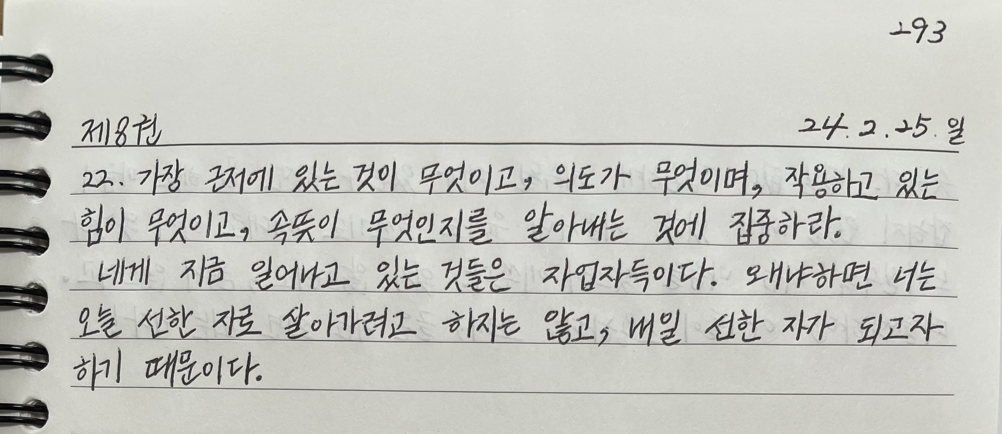 293
제8권
24.2.25.일
22. 가장 근저에 있는 것이 무엇이고, 의도가 무엇이며, 작용하고 있는
힘이 무엇이고, 속뜻이 무엇인지를 알아내는 것에 집중하라.
네게 지금 일어나고 있는 것들은 자업자득이다. 왜냐하면 너는
오늘 선한 자로 살아가려고 하지는 않고, 내일 선한 자가 되고자
하기 때문이다.